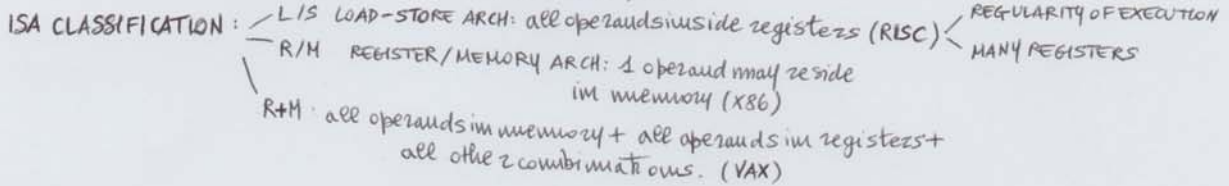 ISA CLASSIFICATION: L/S LOAD-STORE ARCH: all operands inside registers (RISC) REGULARITY OF EXECUTION
MANY REGISTERS
R/M REGISTER/MEMORY ARCH: 1 operand may reside
in memory (X86)
R+M: all operands in memory + all operands in registers +
all other combinations. (VAX)